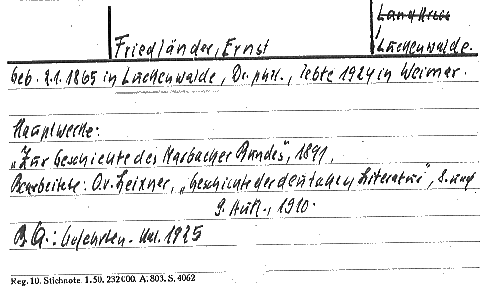 Land Kreis
Friedländer, Ernst
Luckenwalde.
geb. 2.1.1865 in Luckenwalde, Dr. phil., lebte 1924 in Weimar.
Hauptwerke:
„Zur Geschichte des Marbacher Bundes", 1891,
Bearbeitete: O.v. Leixner, „Geschichte der deutschen Literatur", 8. und
9. Aufl., 1910.
B.Q.: Gelehrten-Kal. 1925
Reg. 10. Stichnote. 1. 50. 232000. A. 803. S. 4062